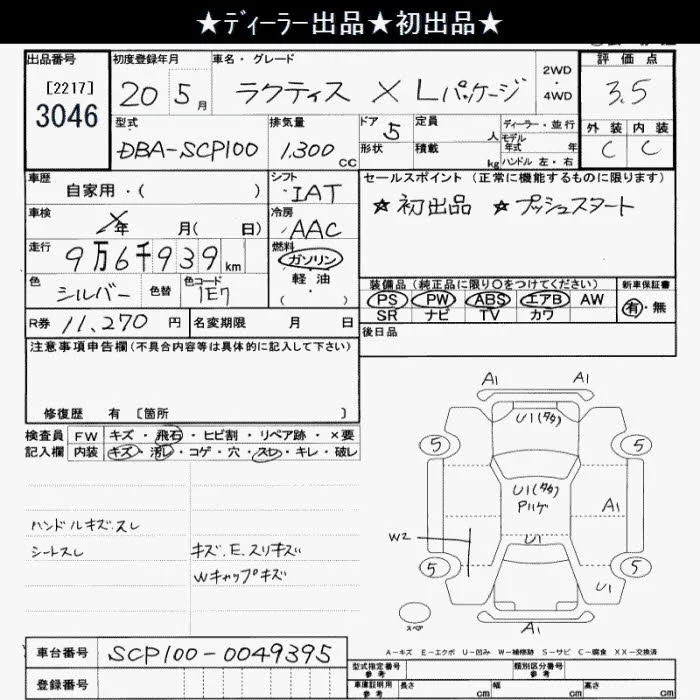 ★ディーラー出品★初出品★
出品番号
[2217]
3046
初度登録年月
20 5月
車名・グレード
ラクティス X Lパッケージ
2WD
・
4WD
評価点
3.5
外装 内装
C C
型式
DBA-SCP100
排気量
1,300 CC
ドア 5
形状
定員 人
積載 kg
ディーラー・並行
モデル
年式 年
ハンドル 左・右
車歴
自家用・( )
シフト
IAT
セールスポイント (正常に機能するものに限ります)
☆初出品 ☆プッシュスタート
車検
X年 月( 日)
冷房
AAC
走行
9万6千939km
燃料
ガソリン
軽油
( ・ )
色
シルバー
色替
色コード
1E7
装備品 (純正品に限り○をつけてください)
PS PW ABS エアB AW
SR ナビ TV カワ
新車保証書
有・無
R券 11,270 円
名変期限 月 日
後日品
注意事項申告欄 (不具合内容等は具体的に記入して下さい)
修復歴 有 [箇所 ]
検査員 FW キズ・飛石・ヒビ割・リペア跡・×要
記入欄 内装 キズ・汚レ・コゲ・穴・スレ・キレ・破レ
ハンドルキズ・スレ
シートスレ
キズ.E.スリキズ
Wキャップキズ
A1 A1
U1(タタ)
5 5
U1(タタ)
Pハゲ
A1
W2
U1
5 5
U1
スペア
A1
A-キズ E-エクボ U-凹み W-補修跡 S-サビ C-腐食 XX-交換済
車台番号 SCP100-0049395
登録番号
型式指定番号
参考
類別区分番号
参考
車庫証明用
参考
長さ cm 幅 cm 高さ cm